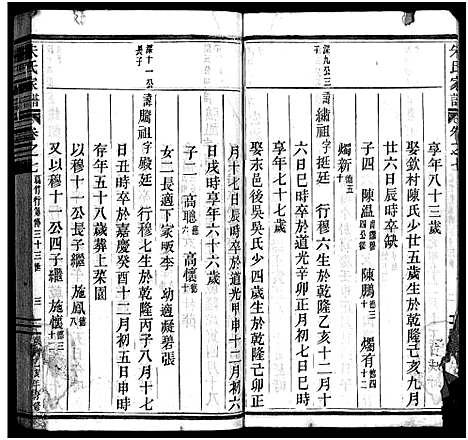 享年八十三歲
娶欽村陳氏少廿五歲生於乾隆己亥九月
廿六日辰時卒缺
子四 陳溫 陳鵬 燭有 德四 德十二
燭新 德五
深九公三子
諱繡祖字挺廷 行穆六生於乾隆乙亥十二月十
七日巳時卒於道光辛卯正月初七日巳時
享年七十七歲
娶東邑後吳吳氏少四歲生於乾隆己卯正
月十七日辰時卒於道光甲申十二月初六
日戌時享年六十六歲
子二 高聰 高懷
女二長適下家販李 幼適凝碧張
深十一公長子
諱騰祖字殿廷 行穆七生於乾隆丙子八月十七
日丑時卒於嘉慶癸酉十二月初五日申時
存年五十八歲葬上菜園
以穆十一公長子繼 施鳳
又以穆十一公四子繼 施懷
朱氏家譜 卷之七